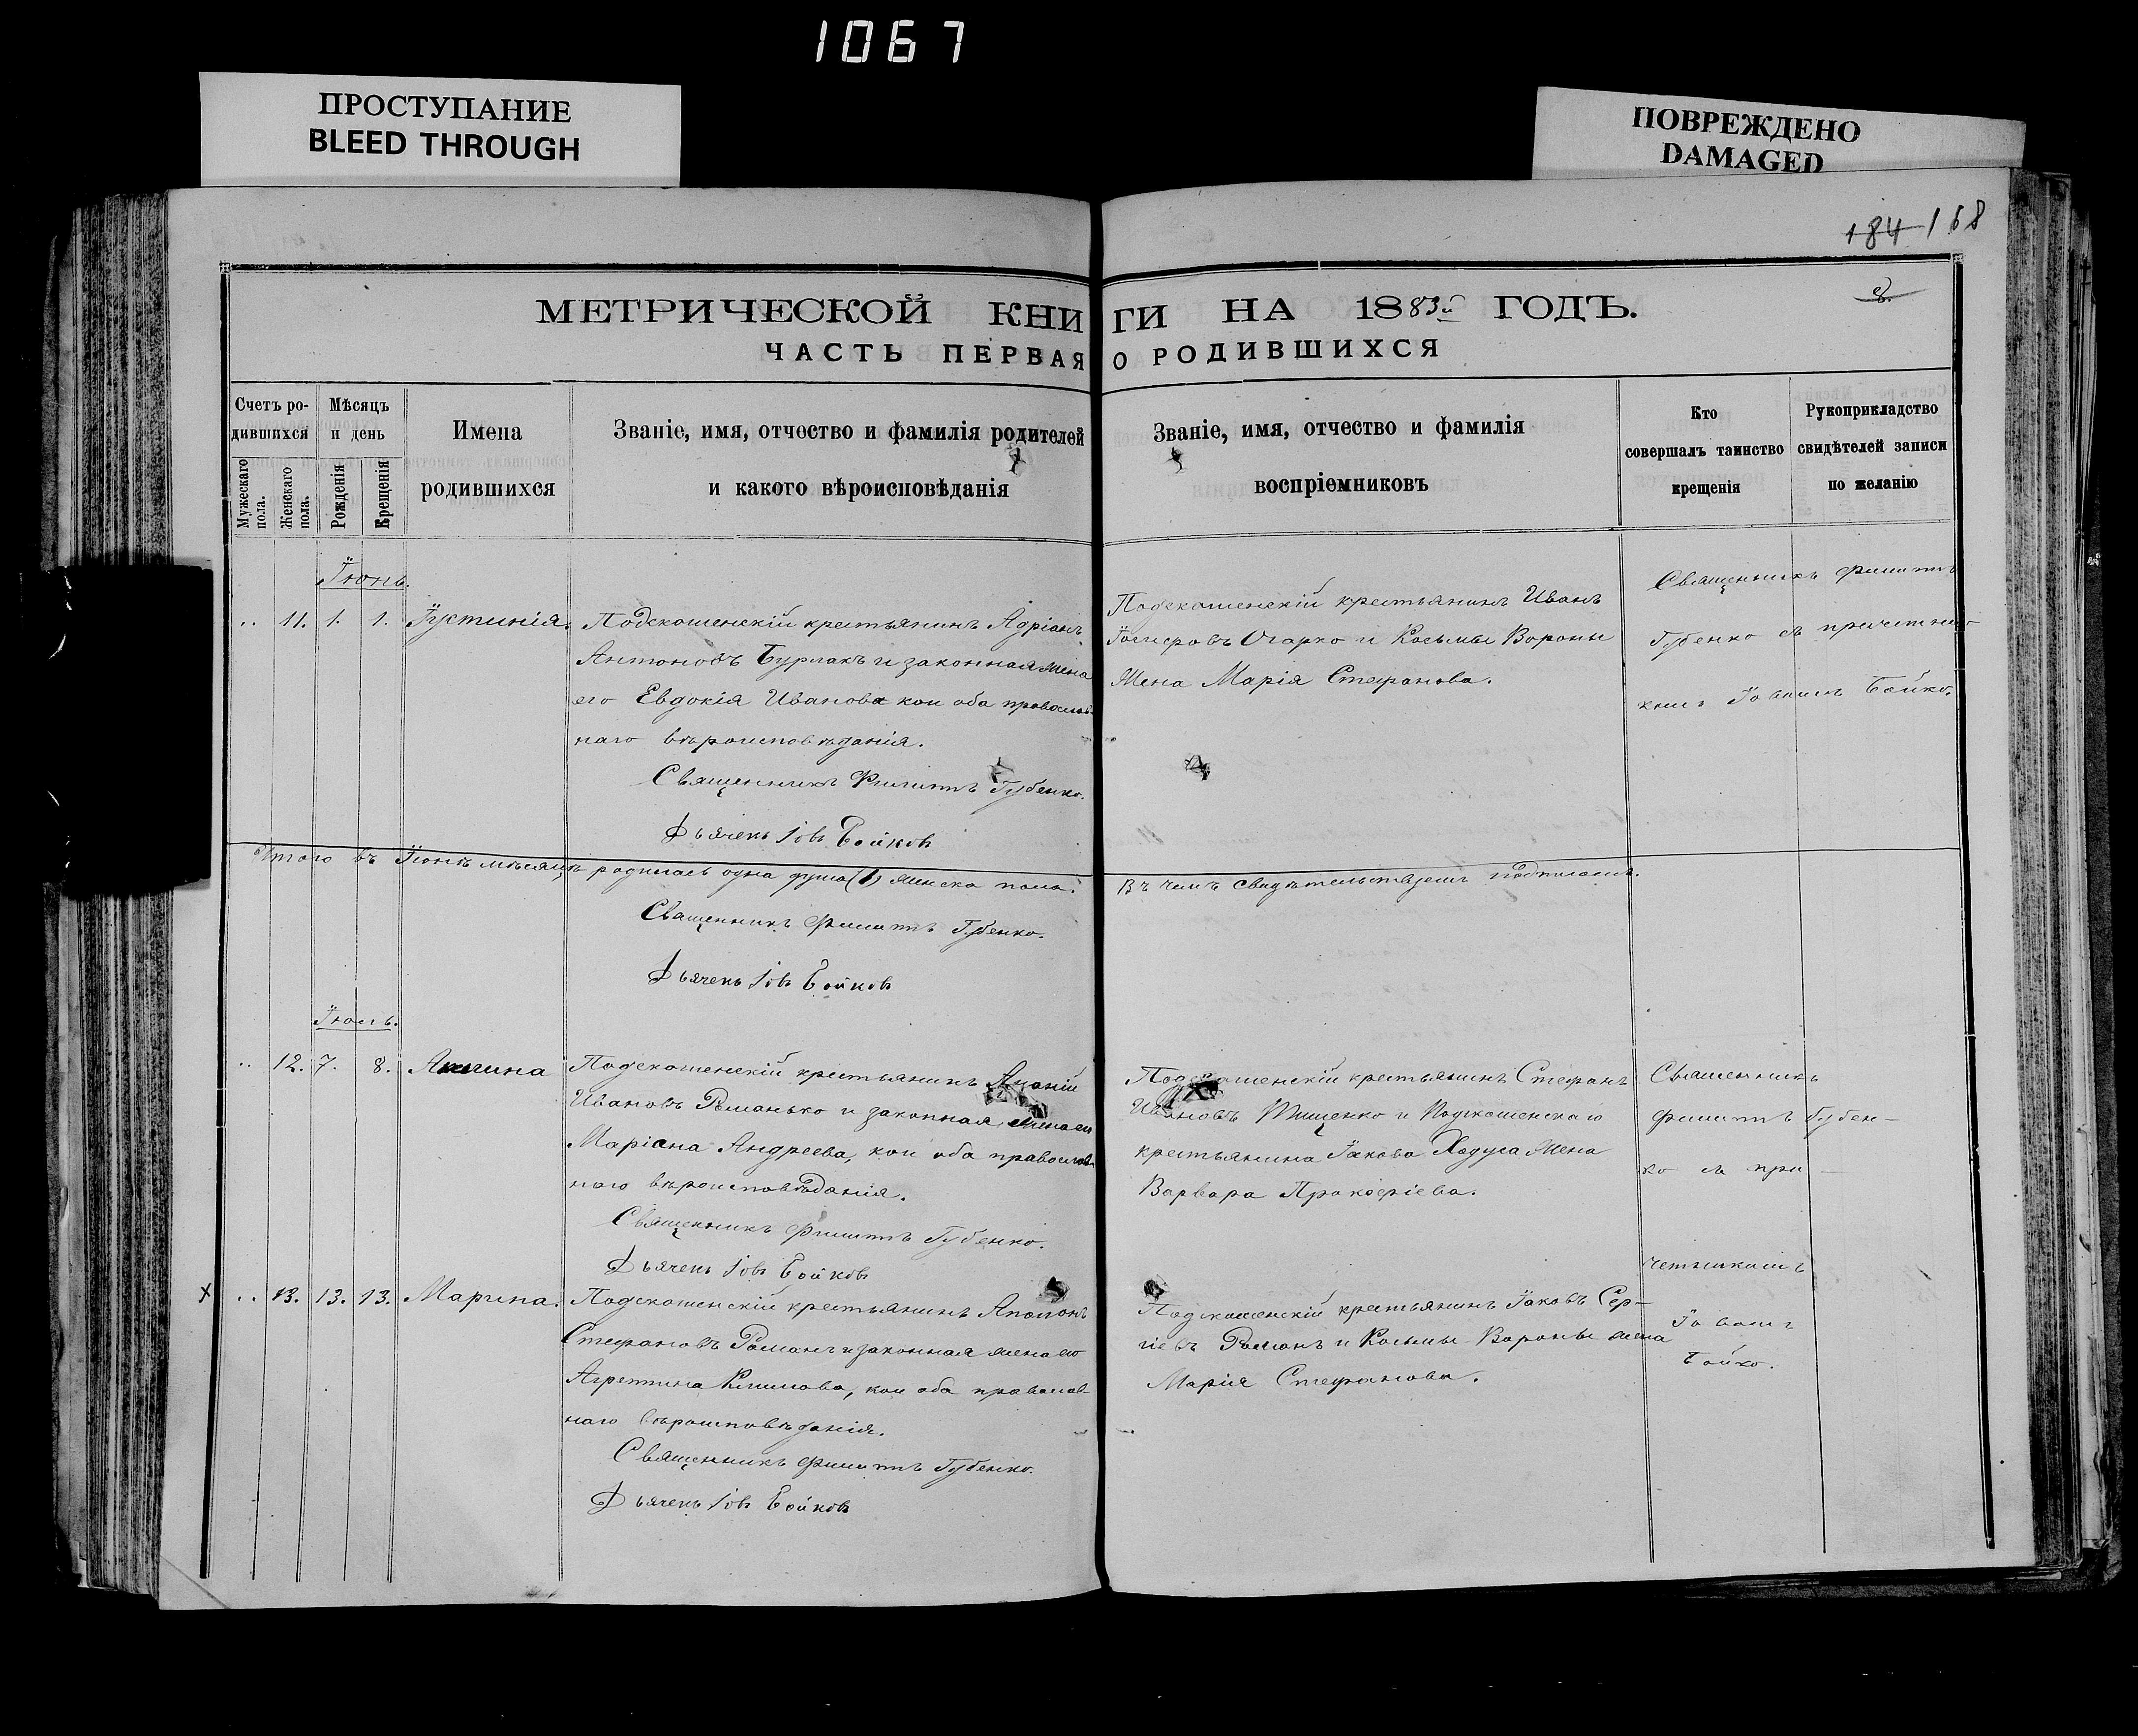 1067
ПРОСТУПАНИЕ
BLEED THROUGH
ПОВРЕЖДЕНО
DAMAGED
184 168
8.
МЕТРИЧЕСКОЙ КНИГИ НА 1883й ГОДЪ.
ЧАСТЬ ПЕРВАЯ О РОДИВШИХСЯ
Счетъ ро-
дившихся
Мужескаго пола.
Женскаго пола.
Мѣсяцъ
и день
Рожденія
Крещенія
Имена
родившихся
Званіе, имя, отчество и фамилія родителей
и какого вѣроисповѣданія
Званіе, имя, отчество и фамилія
воспріемниковъ
Кто
совершалъ таинство
крещенія
Рукоприкладство
свидѣтелей записи
по желанію
Їюнь.
.. 11. 1. 1. Їустинія.
Подскошенскій крестьянинъ Адріанъ
Антоновъ Бурлакъ и законная жена
его Евдокія Иванова кои оба православ-
наго вѣроисповѣданія.
Священникъ Филиппъ Губенко.
Дьячекъ Іовъ Бойковъ
Подскошенскій крестьянинъ Иванъ
Їосифовъ Огарко и Косьмы Вороны
Жена Марія Стефанова.
Священникъ Филиппъ
Губенко съ причетни-
комъ Їовомъ Бойко.
Итого въ Їюнѣ мѣсяцѣ родилась одна душа (1) женска пола.
Въ чемъ свидѣтельствуемъ подписомъ.
Священникъ Филиппъ Губенко.
Дьячекъ Іовъ Бойковъ
Їюль.
.. 12. 7. 8. Акилина
Подскошенскій крестьянинъ Ананій
Ивановъ Романько и законная жена его
Маріана Андреева, кои оба православ-
наго вѣроисповѣданія.
Священникъ Филиппъ Губенко.
Дьячекъ Іовъ Бойковъ
Подскошенскій крестьянинъ Стефанъ
Ивановъ Тищенко и Подскошенскаго
крестьянина Їакова Ходуса Жена
Варвара Прокофіева.
Священникъ
Филиппъ Губен-
ко съ при-
четникомъ
Їовомъ
Бойко.
х .. 13. 13. 13. Марина.
Подскошенскій крестьянинъ Аполонъ
Стефановъ Романъ и законная жена его
Агрепина Климова, кои оба православ-
наго вѣроисповѣданія.
Священникъ Филиппъ Губенко.
Дьячекъ Іовъ Бойковъ
Подскошенскій крестьянинъ Їаковъ Сер-
гіевъ Романъ и Косьмы Вороны жена
Марія Стефанова.